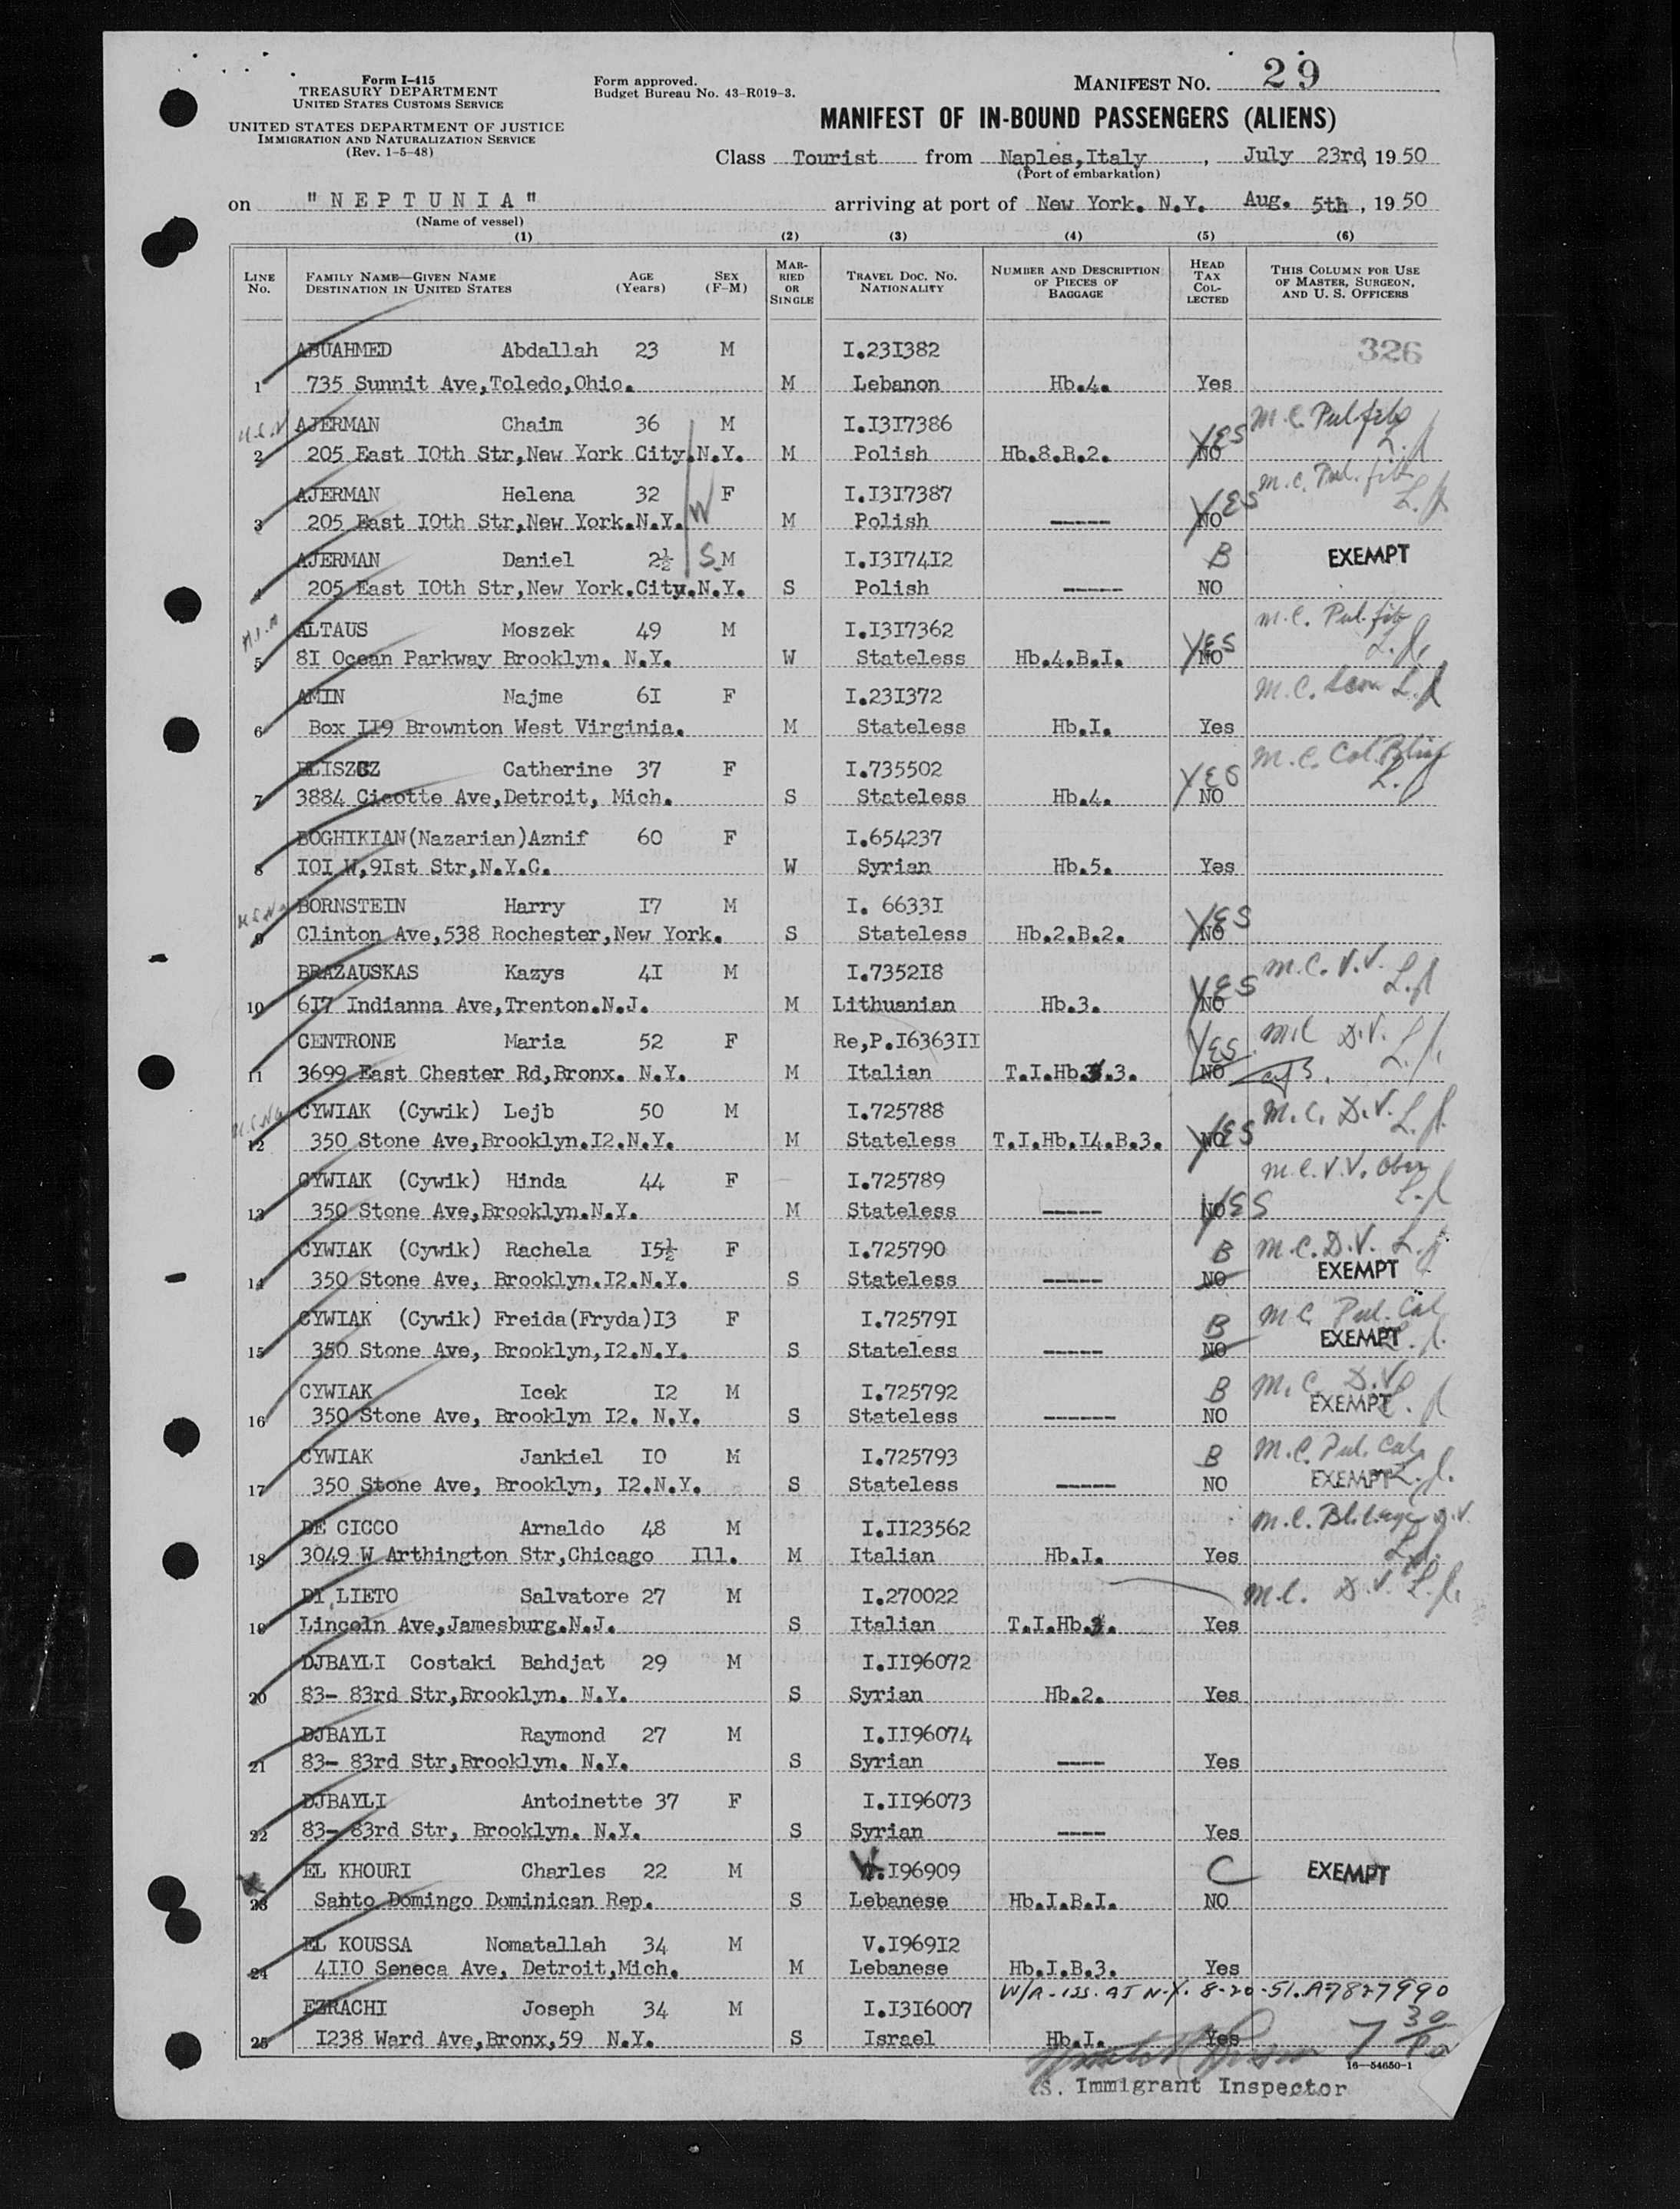 Form I-415
TREASURY DEPARTMENT
UNITED STATES CUSTOMS SERVICE
UNITED STATES DEPARTMENT OF JUSTICE
IMMIGRATION AND NATURALIZATION SERVICE
(Rev. 1-5-48)
Form approved.
Budget Bureau No. 43-R019-3.
MANIFEST NO. 29
MANIFEST OF IN-BOUND PASSENGERS (ALIENS)
Class Tourist from Naples,Italy , July 23rd, 1950
(Port of embarkation)
on "NEPTUNIA" arriving at port of New York. N.Y. Aug. 5th, 1950
(Name of vessel)
(1) (2) (3) (4) (5) (6)
LINE No. FAMILY NAME—GIVEN NAME DESTINATION IN UNITED STATES AGE (Years) SEX (F-M) MARRIED OR SINGLE TRAVEL DOC. NO. NATIONALITY NUMBER AND DESCRIPTION OF PIECES OF BAGGAGE HEAD TAX COLLECTED THIS COLUMN FOR USE OF MASTER, SURGEON, AND U. S. OFFICERS
ABUAHMED Abdallah 23 M I.23I382 326
1 735 Sunnit Ave,Toledo,Ohio. M Lebanon Hb.4. Yes
AJERMAN Chaim 36 M I.I3I7386 YES M.C. Pul.
2 205 East IOth Str,New York City.N.Y. M Polish Hb.8.B.2. NO L.
AJERMAN Helena 32 F I.I3I7387 YES M.C. Pul.
3 205 East IOth Str,New York.N.Y. W M Polish ----- NO L.
AJERMAN Daniel 2½ S M I.I3I74I2 B EXEMPT
4 205 East IOth Str,New York.City.N.Y. S Polish ----- NO
ALTAUS Moszek 49 M I.I3I7362 YES M.C. Pul.
5 8I Ocean Parkway Brooklyn. N.Y. W Stateless Hb.4.B.I. NO L.
AMIN Najme 6I F I.23I372 M.C. L.
6 Box II9 Brownton West Virginia. M Stateless Hb.I. Yes
BLISZCZ Catherine 37 F I.735502 YES M.C. Cat.
7 3884 Cicotte Ave,Detroit, Mich. S Stateless Hb.4. NO L.
BOGHIKIAN(Nazarian)Aznif 60 F I.654237
8 IOI W,9Ist Str,N.Y.C. W Syrian Hb.5. Yes
BORNSTEIN Harry I7 M I. 6633I YES
9 Clinton Ave,538 Rochester,New York. S Stateless Hb.2.B.2. NO
BRAZAUSKAS Kazys 4I M I.7352I8 YES M.C. V.V.
10 6I7 Indianna Ave,Trenton.N.J. M Lithuanian Hb.3. NO L.
CENTRONE Maria 52 F Re,P.I6363II YES M.C. D.V.
11 3699 East Chester Rd,Bronx. N.Y. M Italian T.I.Hb.3. NO L.
CYWIAK (Cywik) Lejb 50 M I.725788 YES M.C. D.V. L.
12 350 Stone Ave,Brooklyn.I2.N.Y. M Stateless T.I.Hb.I4.B.3. NO
CYWIAK (Cywik) Hinda 44 F I.725789 M.C. V.V.
13 350 Stone Ave,Brooklyn.N.Y. M Stateless ----- NO YES L.
CYWIAK (Cywik) Rachela I5½ F I.725790 B M.C. D.V. L.
14 350 Stone Ave, Brooklyn.I2.N.Y. S Stateless ----- NO EXEMPT
CYWIAK (Cywik) Freida(Fryda)I3 F I.72579I B M.C. Pul. Cat
15 350 Stone Ave, Brooklyn,I2.N.Y. S Stateless ----- NO EXEMPT
CYWIAK Icek I2 M I.725792 B M.C. D.V.
16 350 Stone Ave, Brooklyn I2. N.Y. S Stateless ------ NO EXEMPT
CYWIAK Jankiel IO M I.725793 B M.C. Pul. Cat
17 350 Stone Ave, Brooklyn, I2.N.Y. S Stateless ----- NO EXEMPT
DE CICCO Arnaldo 48 M I.II23562 M.C. D.V.
18 3049 W Arthington Str,Chicago Ill. M Italian Hb.I. Yes
DI LIETO Salvatore 27 M I.270022 M.C. D.V. L.
19 Lincoln Ave,Jamesburg.N.J. S Italian T.I.Hb. Yes
DJBAYLI Costaki Bahdjat 29 M I.II96072
20 83- 83rd Str,Brooklyn. N.Y. S Syrian Hb.2. Yes
DJBAYLI Raymond 27 M I.II96074
21 83- 83rd Str,Brooklyn. N.Y. S Syrian ---- Yes
DJBAYLI Antoinette 37 F I.II96073
22 83- 83rd Str, Brooklyn. N.Y. S Syrian ---- Yes
EL KHOURI Charles 22 M V.I96909 C EXEMPT
23 Sahto Domingo Dominican Rep. S Lebanese Hb.I.B.I. NO
EL KOUSSA Nomatallah 34 M V.I969I2
24 4IIO Seneca Ave, Detroit,Mich. M Lebanese Hb.I.B.3. Yes
W/A - ISS. AT N.Y. 8-20-51. A-7827990
EZRACHI Joseph 34 M I.I3I6007
25 I238 Ward Ave,Bronx,59 N.Y. S Israel Hb.I. Yes 7 30
16—54650-1
S. Immigrant Inspector